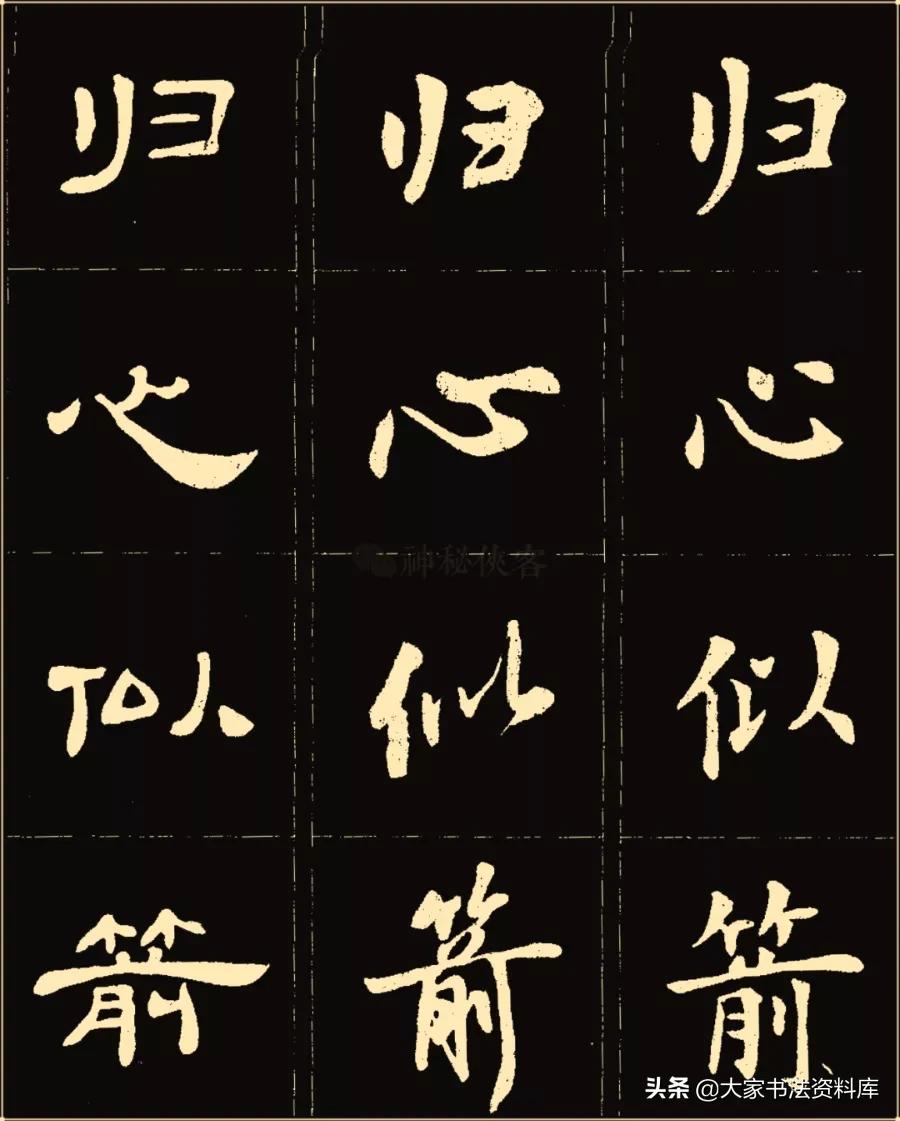 归 归 归
心 心 心
神秘侠客
似 似 似
箭 箭 箭
头条 @大家书法资料库